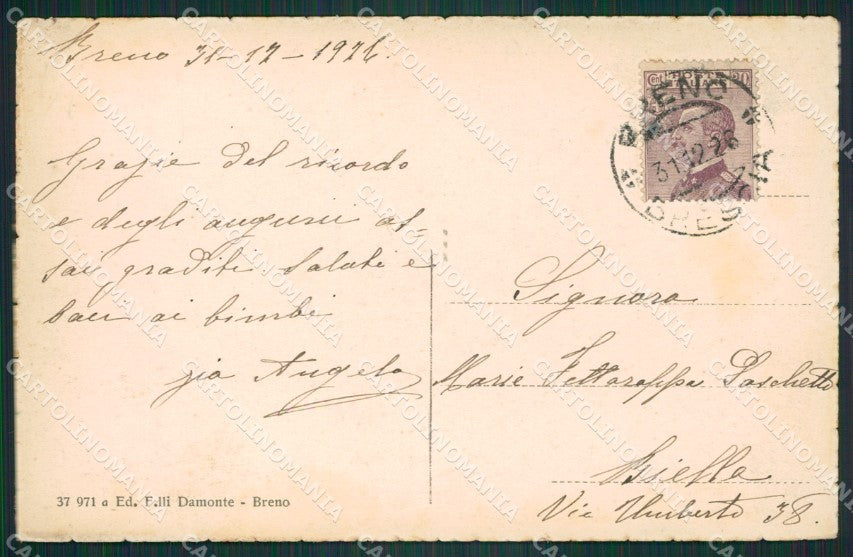 Breno 31-12-1926.
Grazie del ricordo
e degli augurii as-
sai graditi saluti e
baci ai bimbi
zio Angelo
37 971 a Ed. F.lli Damonte - Breno
Cent 20
BRENO
31.12.26
BRESCIA
Signora
Maria Foschetti
Biella
Via Umberto 38.
CARTOLINOMANIA